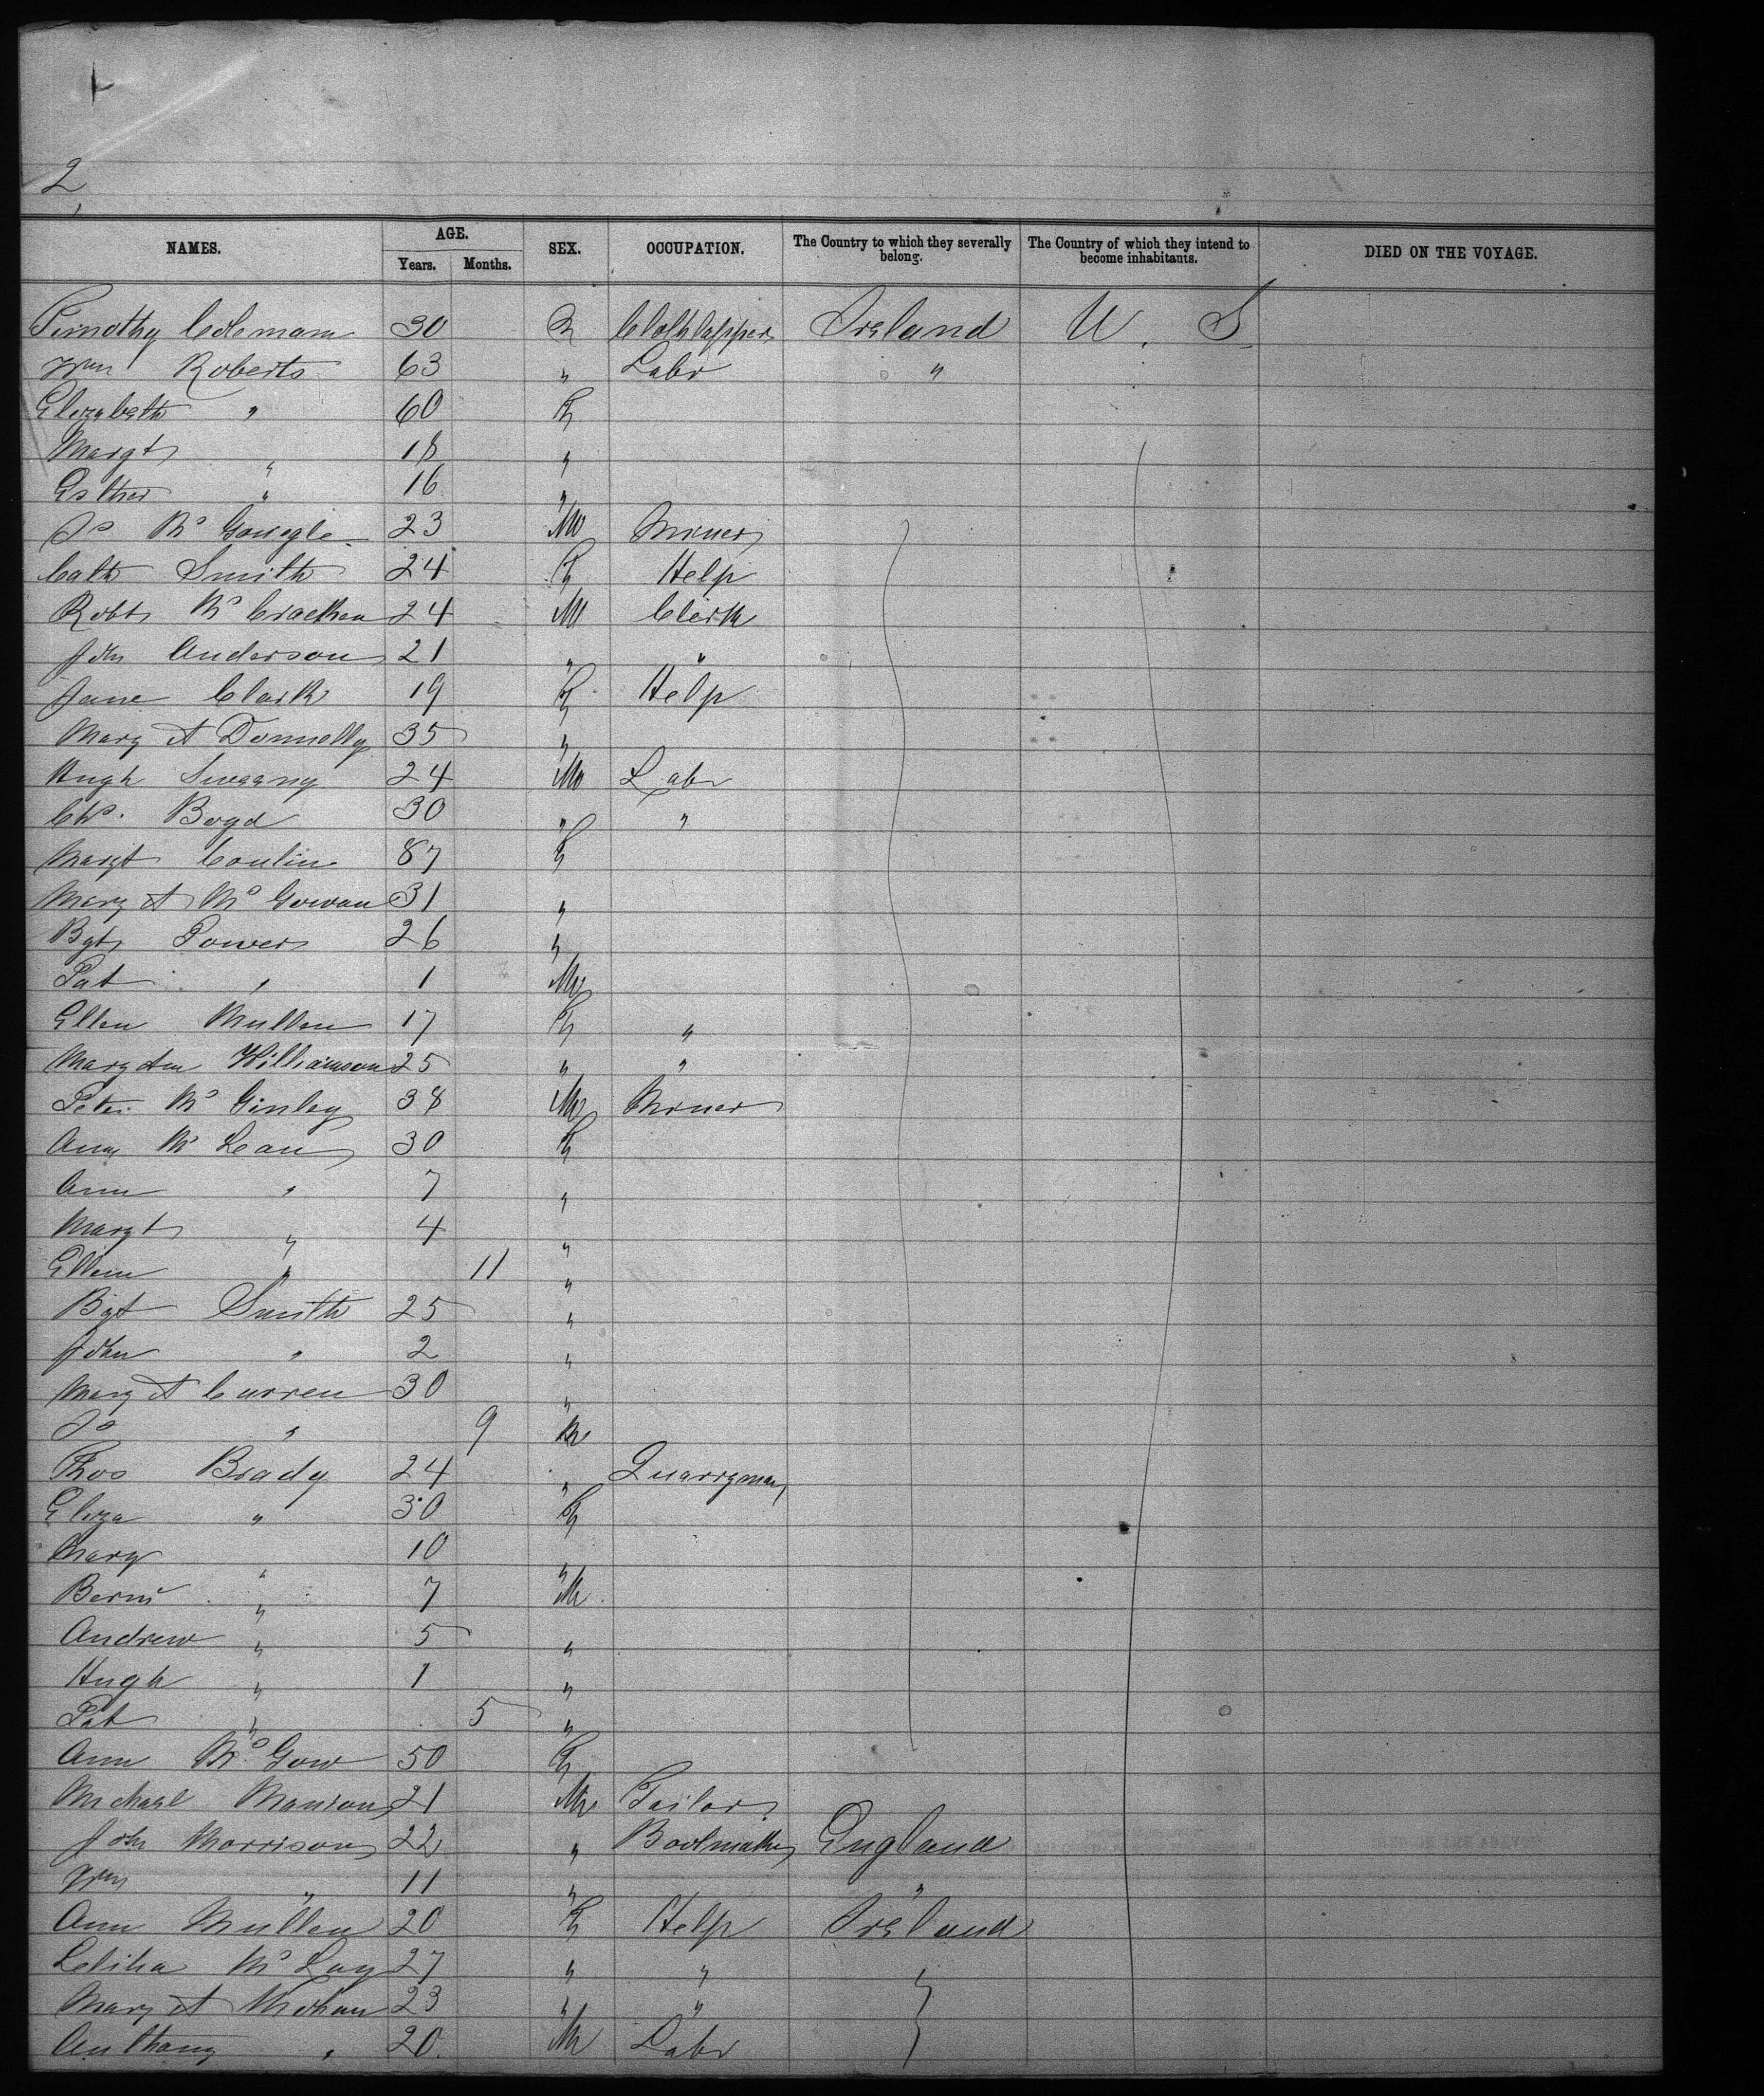 2
NAMES. AGE. SEX. OCCUPATION. The Country to which they severally belong. The Country of which they intend to become inhabitants. DIED ON THE VOYAGE.
Years. Months.
Timothy Coleman 30 Clothlapper Ireland U. S.
Wm Roberts 63 " Labr "
Elizabeth " 60 F
Margt " 18 "
Esther " 16 "
Js Mc Gonegle 23 M Miner
Cath Smith 24 F Help
Robt Mc Cracken 24 M Clerk
John Anderson 21 " "
Jane Clark 19 F Help
Mary A Donnelly 35 "
Hugh Sweeny 24 M Labr
Chs. Boyd 30 " "
Margt Conlin 87 F
Mary A Mc Gowan 31 "
Bgt Power 26 "
Pat " 1 M
Ellen Mullen 17 F "
Mary Ann Williamson 25 " "
Peter Mc Ginley 38 M Miner
Ann Mc Lean 30 F
Ann " 7 "
Margt " 4 "
Ellen " 11 "
Bgt Smith 25 "
John " 2 "
Mary A Curren 30 "
Js " 9 M
Thos Brady 24 " Quarryman
Eliza " 30 F
Mary " 10 "
Bernd " 7 M
Andrew " 5 "
Hugh " 1 "
Pat " 5 "
Ann Mc Gow 50 F
Michael Manion 21 M Tailor
John Morrison 22 " Bootmaker England
Wm " 11 " "
Ann Mullen 20 F Help Ireland
Letiha Mc Lay 27 " "
Mary A 23 " "
Anthony " 20 M Labr